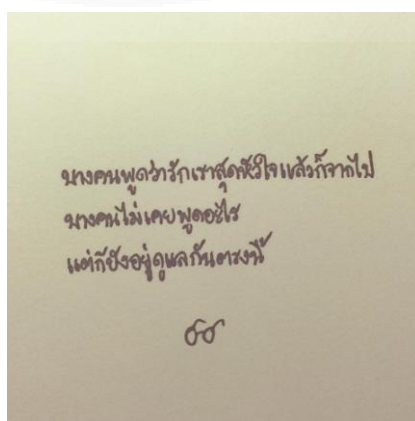 บางคนพูดว่ารักเราสุดหัวใจแล้วก็จากไป
บางคนไม่เคยพูดอะไร
แต่ก็ยังอยู่ดูแลกันตรงนี้